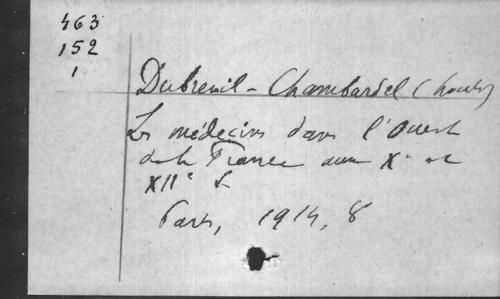 463
152
1
Dubreuil-Chambardel (Louis)
Les médecins dans l'Ouest
de la France aux Xe et
XIIe s.
Paris, 1914, 8